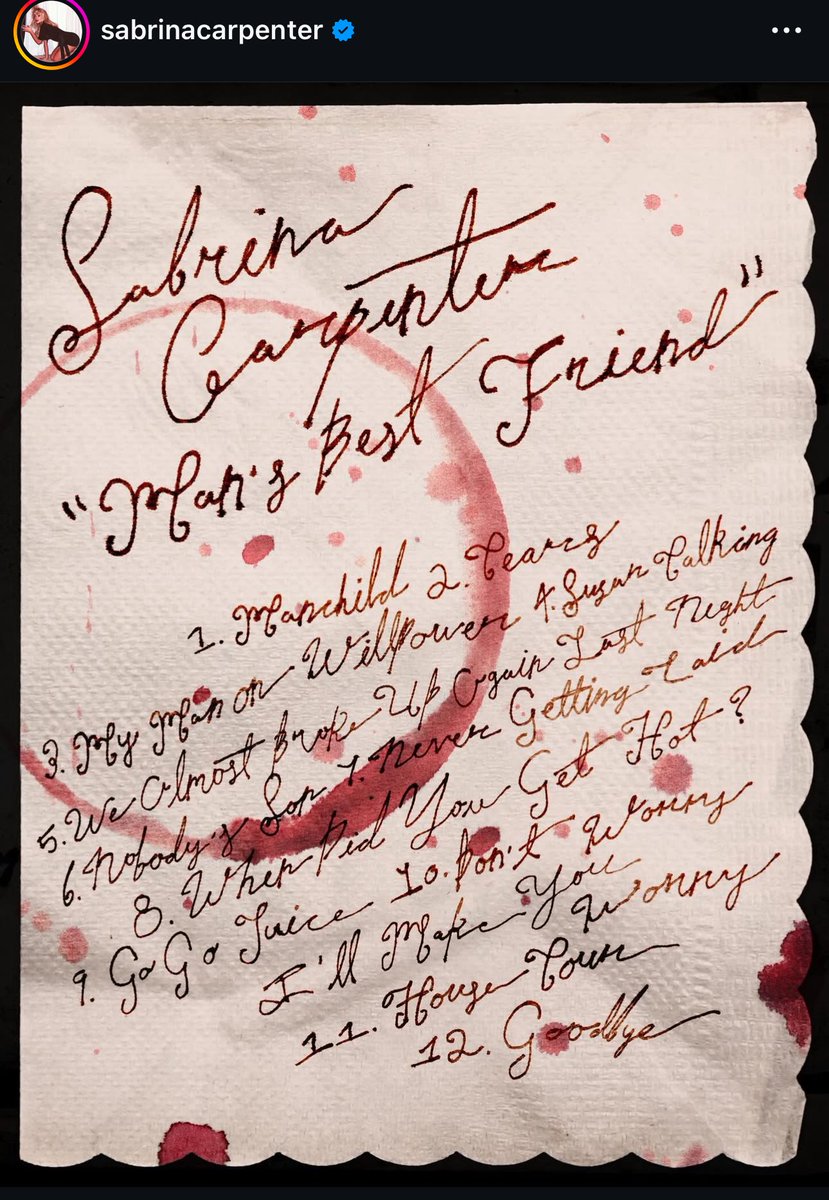 sabrinacarpenter
Sabrina
Carpenter
"Man's Best Friend"
1. Manchild 2. Tears
3. My Man on Willpower 4. Sugar Talking
5. We Almost Broke Up Again Last Night
6. Nobody's Son 7. Never Getting Laid
8. When Did You Get Hot?
9. Go Go Juice 10. Don't Worry
I'll Make You Worry
11. House Tour
12. Goodbye